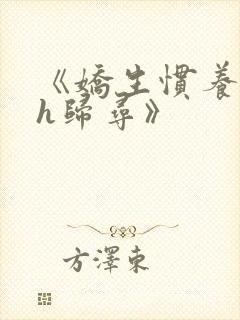 《嬌生慣養
h歸尋》
方澤東